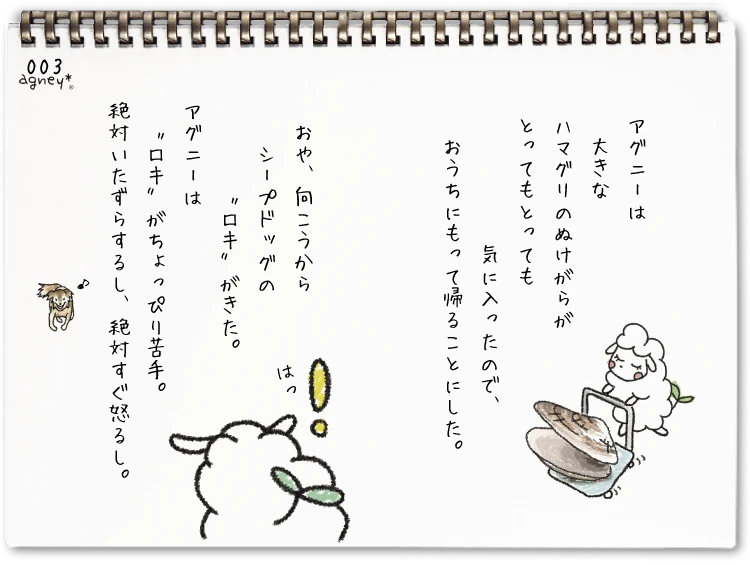 003
agney*®
アグニーは
大きな
ハマグリのぬけがらが
とってもとっても
気に入ったので、
おうちにもって帰ることにした。
おや、向こうから
シープドッグの
“ロキ”がきた。
はっ
アグニーは
“ロキ”がちょっぴり苦手。
絶対いたずらするし、絶対すぐ怒るし。